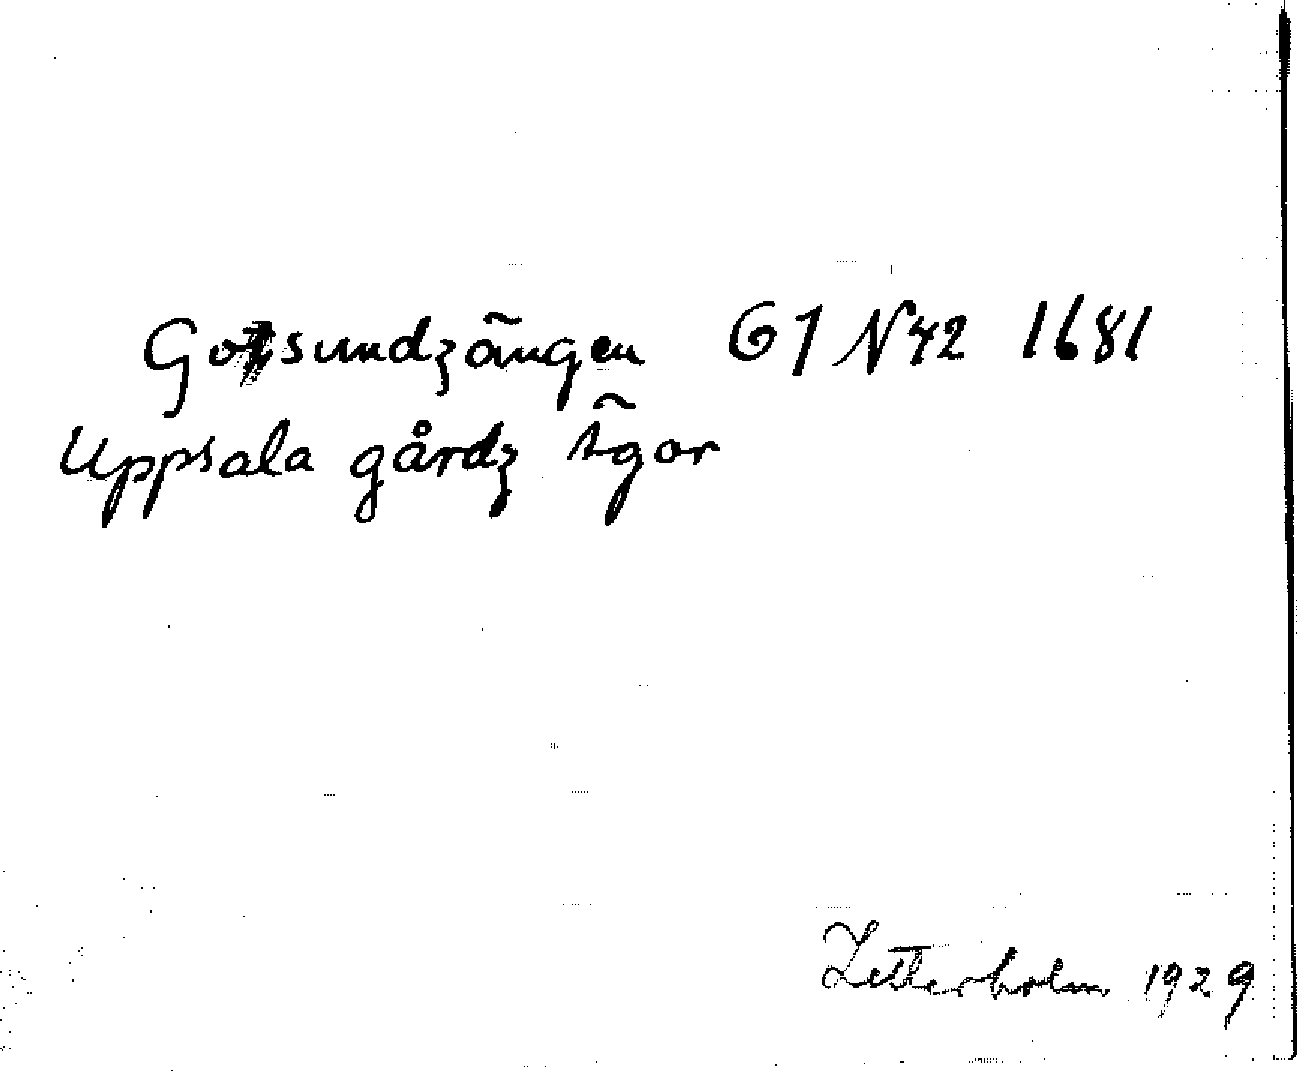 Gotsundzängen G1 N42 1681
Uppsala gårdz Ägor
Zetterholm 1929